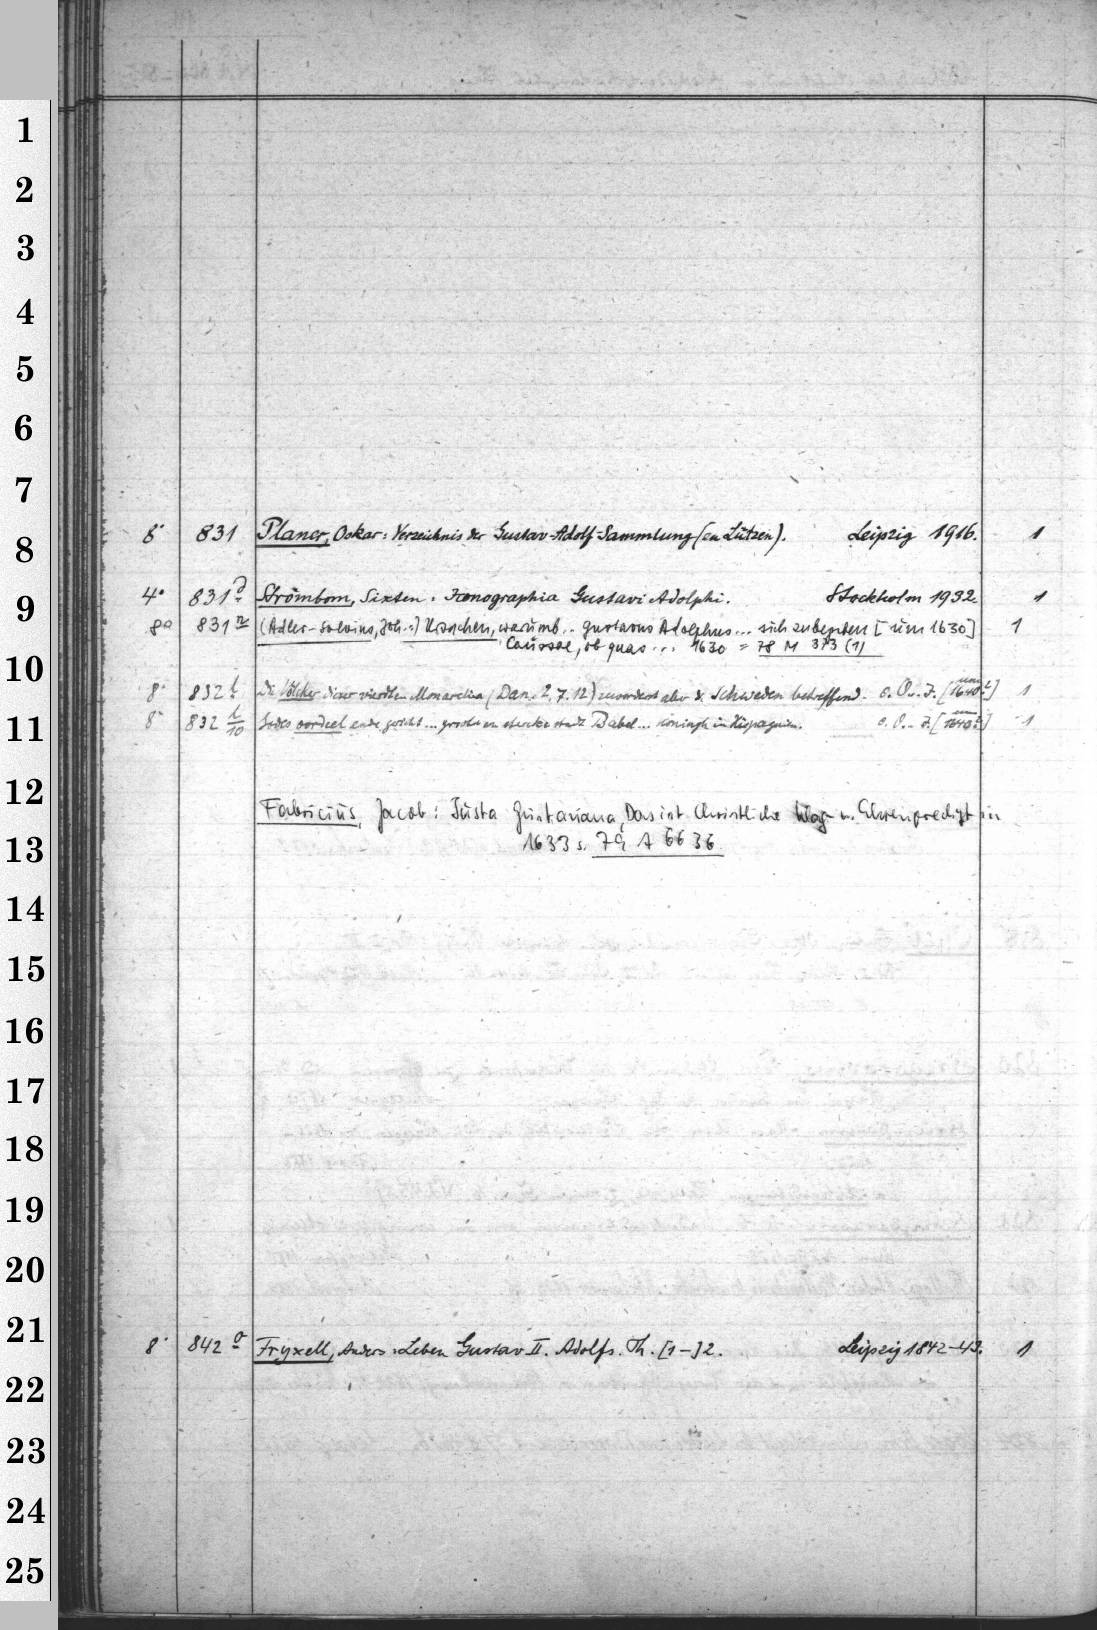 1
2
3
4
5
6
7
8
9
10
11
12
13
14
15
16
17
18
19
20
21
22
23
24
25
8° 831 Planer, Oskar: Verzeichnis der Gustav-Adolf-Sammlung (in Lützen). Leipzig 1916. 1
4° 831 d Strömbom, Sixten: Iconographia Gustavi Adolphi. Stockholm 1932. 1
8° 831 n (Adler-Salvius, Joh.:) Ursachen, warumb.. Gustavus Adolphus... sich zubegeben [um 1630] 1
Caussae, ob quas ... 1630 = 78 M 373 (1)
8° 832 Die Völcker dieser vierdten Monarchia (Dan. 2, 7. 12) aber d. Schweden betreffend. o. O. u. J. [um 1640] 1
8° 832 10 oordeel ende ... groote en stercke stadt Babel ... coningh in Hispagnien. o. O. u. J. [um 1640] 1
Fabricius, Jacob: Justa Gustaviana, Das ist Christliche Klag- u. Ehrenpredigt in
1633 s. 79 A 6636
8° 842 Fryxell, Anders: Leben Gustav II. Adolfs. Th. [1-]2. Leipzig 1842-43. 1